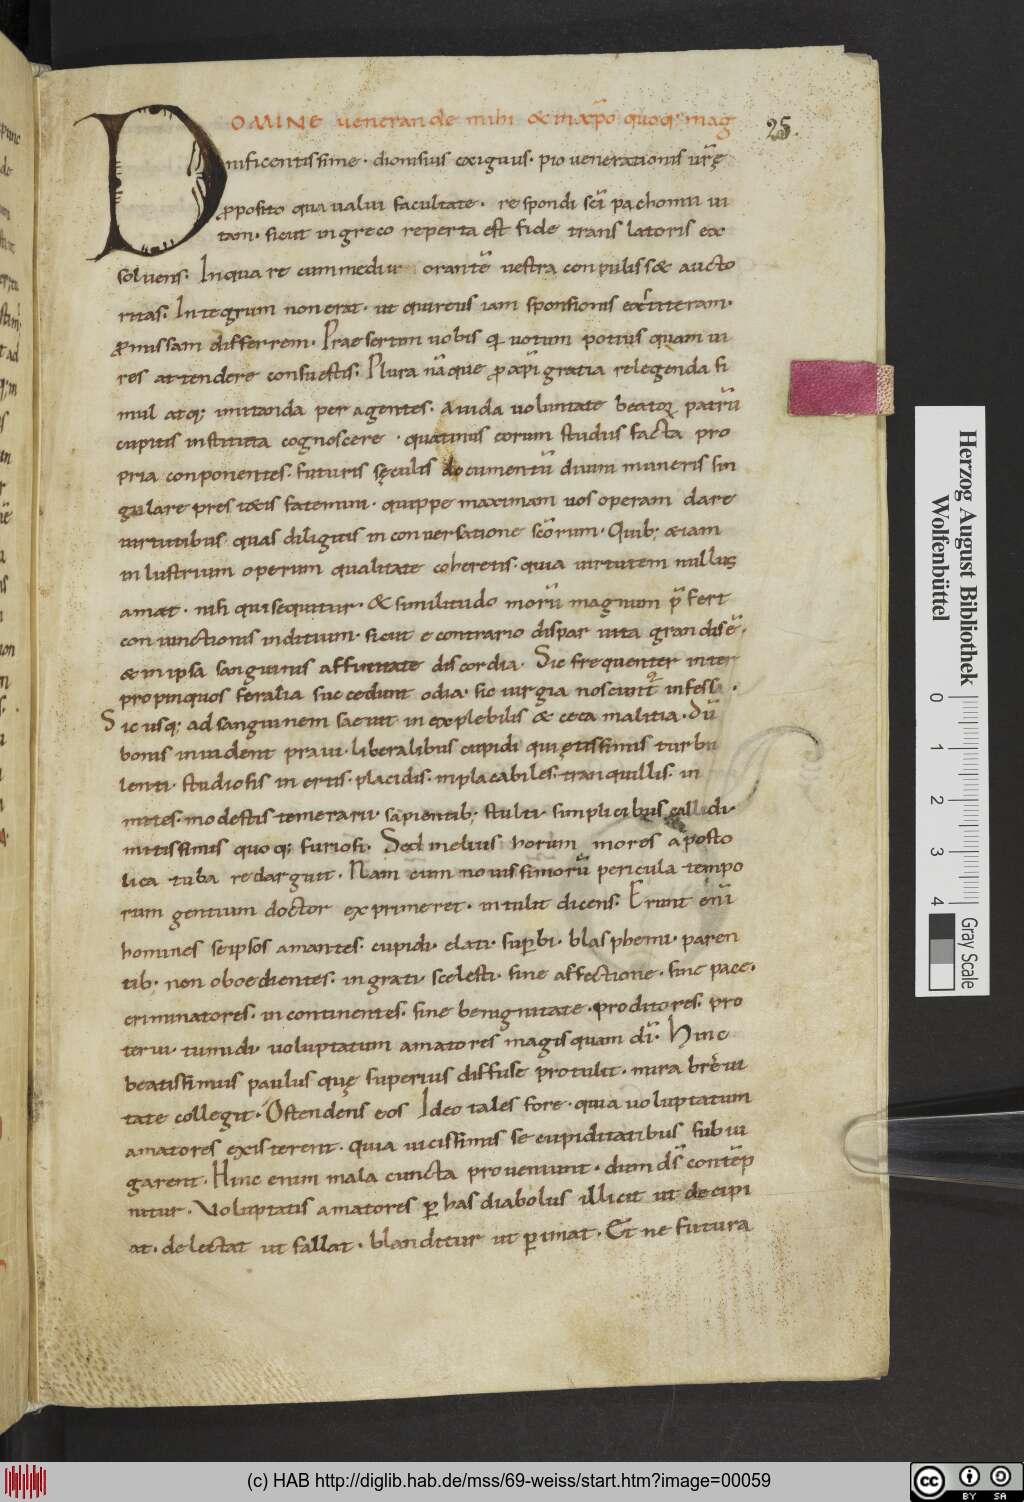 DOMINE venerande mihi & inxpo quoq; mag 25.
nificentissime · dionisius exiguus · pio venerationis urẽ
proposito qua ualui facultate · respondi scī pachomii ui
tam · sicut in greco reperta est fide translatoris ex
soluens. Inqua re cum medio orantẽ uestra conpulisset aucto
ritas. Integrum non erat · ut
promissam differrem · Praesertim uobis qui uotum potius quam ui
res attendere consuestis. Plura nāque pro xpi gratia relegenda si
mul atq; imitanda peragentes. Auida uoluntate beatorū patrū
cupitis instituta cognoscere · quatinus eorum studiis facta pro
pria conponentes. futuris sęculis documentū diuini muneris sin
gulare prestetis fatemini · quippe maximam uos operam dare
uirtutibus quas diligitis in conuersatione scōrum. Quib; etiam
inlustrium operum qualitate coheretis · quia uirtutem nullus
amat · nisi qui sequitur · & similitudo morū magnum p̄fert
coniunctionis inditium · sicut e contrario dispar uita grandisē ·
& in ipsa sanguinis affinitate discordia. Sic frequenter inter
propinquos feralia succedunt odia · sic iurgia noscunt infesta ·
Sic usq; ad sanguinem saeuit inexplebilis & ceca malitia. Dū
bonis inuident praui · liberalibus cupidi quietissimis turbu
lenti · studiosis inertis · placidis · inplacabiles. tranquillis. in
mites · modestis temerarii · sapientib; stulti · simplicibus callidi ·
mitissimis quoq; furiosi. Sed melius horum mores aposto
lica tuba redarguit. Nam cum nouissimorū pericula tempo
rum gentium doctor exprimeret · intulit dicens. Erunt enī
homines seipsos amantes · cupidi · elati · supbi · blasphemi · paren
tib; non oboedientes · ingrati · scelesti · sine affectione · sine pace ·
criminatores · incontinentes · sine benignitate · proditores · pro
terui · tumidi · uoluptatum amatores magis quam dī. Hinc
beatissimus paulus quę superius diffuse protulit · mira breui
tate collegit. Ostendens eos Ideo tales fore · quia uoluptatum
amatores existerent. quia uicissimis se cupiditatibus subiu
garent. Hinc enim mala cuncta proueniunt · dum ds contēp
nitur. Voluptatis amatores per has diabolus illicit ut decipi
at. delectat ut fallat. blanditur ut perimat. Et ne futura
Herzog August Bibliothek
Wolfenbüttel
0 1 2 3 4
Gray Scale
(c) HAB http://diglib.hab.de/mss/69-weiss/start.htm?image=00059
cc BY SA